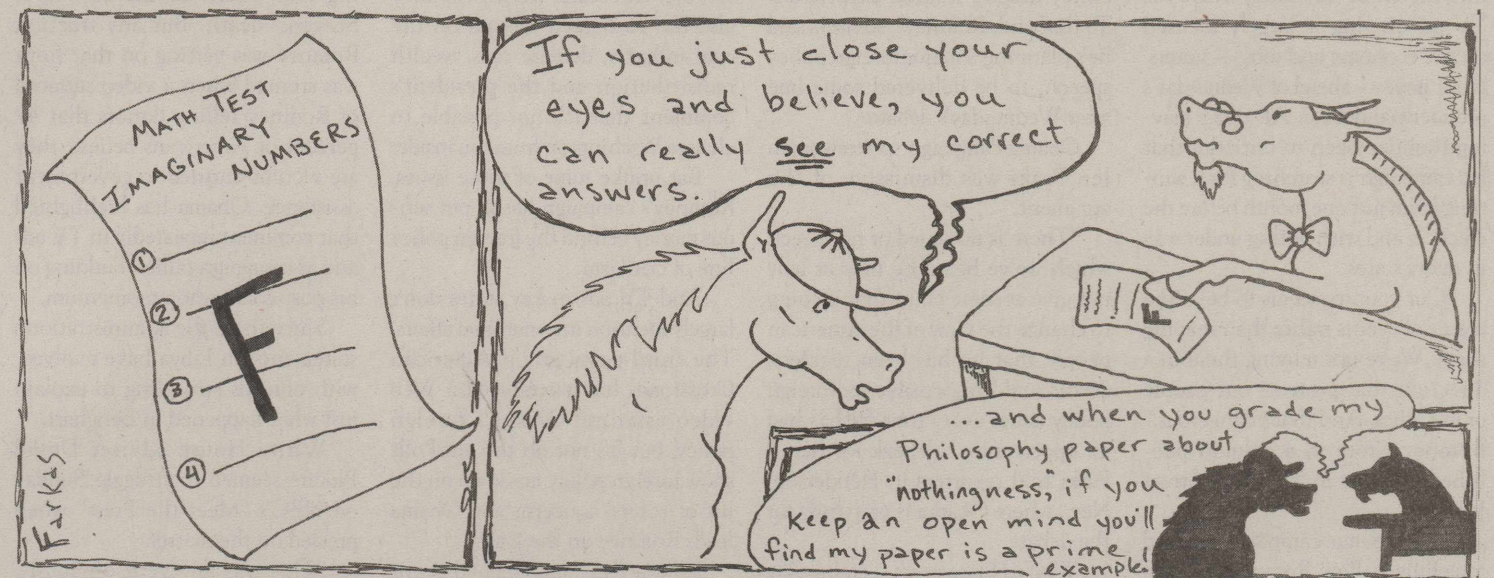 MATH TEST
IMAGINARY
NUMBERS
①
②
③
④
F
Farkas
If you just close your
eyes and believe, you
can really see my correct
answers.
F
...and when you grade my
Philosophy paper about
"nothingness," if you
keep an open mind you'll
find my paper is a prime
example!